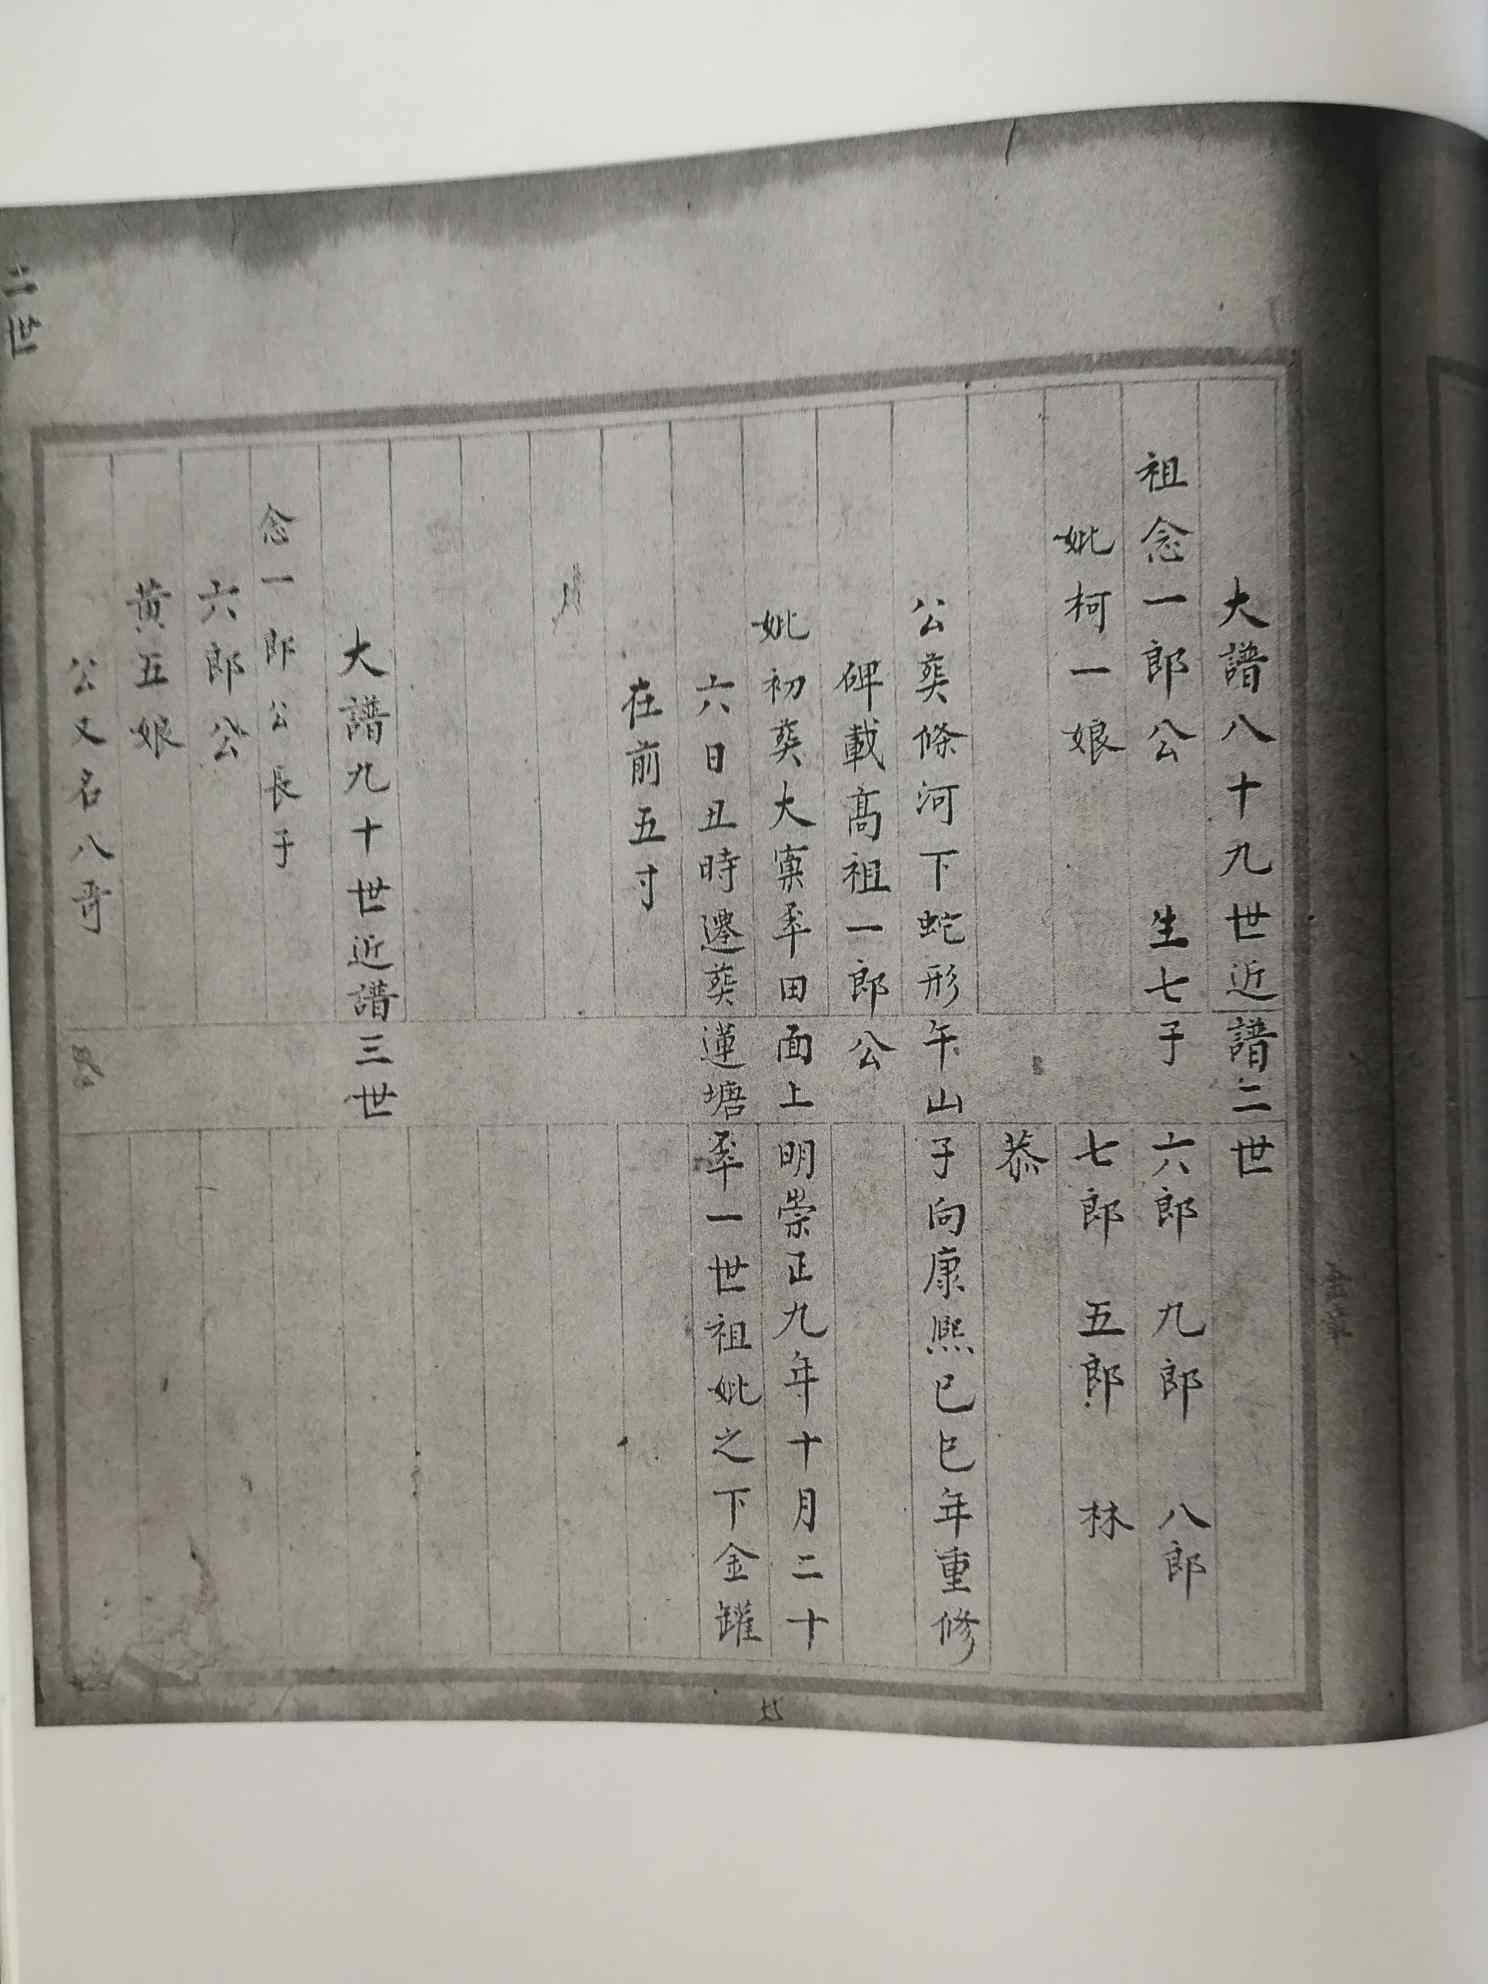 大譜八十九世近譜二世
祖念一郎公 生七子 六郎 九郎 八郎
妣柯一娘 七郎 五郎 林
恭
公葬條河下蛇形午山子向康熙已巳年重修
碑載高祖一郎公
妣初葬大窠坪田面上明崇正九年十月二十
六日丑時遷葬蓮塘坪一世祖妣之下金罐
在前五寸
大譜九十世近譜三世
念一郎公長子
六郎公
黄五娘
公又名八哥
二世